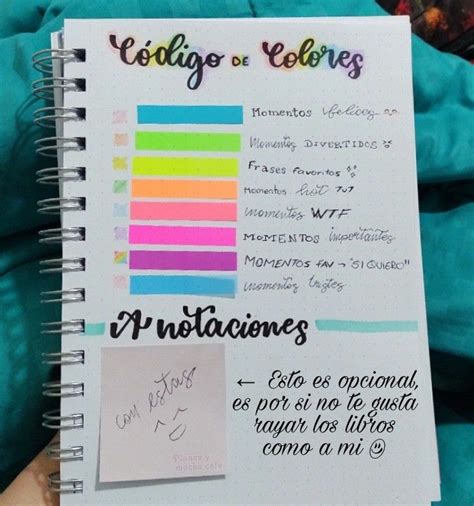 Código DE Colores
Momentos felices
Momentos DIVERTIDOS
Frases favoritas
Momentos hot TuT
momentos WTF
MOMENTOS importantes
MOMENTOS FAV → "SI QUIERO"
momentos tristes
Anotaciones
con estas
^ ^
← Esto es opcional,
es por si no te gusta
rayar los libros
como a mi